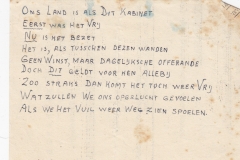 Ons Land is als Dit Kabinet
Eerst was het Vrij
Nu is het bezet
Het is, als tusschen dezen wanden
Geen Winst, maar dagelijksche offerande
Doch Dit geldt voor hen allebij
Zoo straks dan komt het toch weer Vrij
Wat zullen we ons opgelucht gevoelen
Als we het Vuil weer weg zien spoelen.